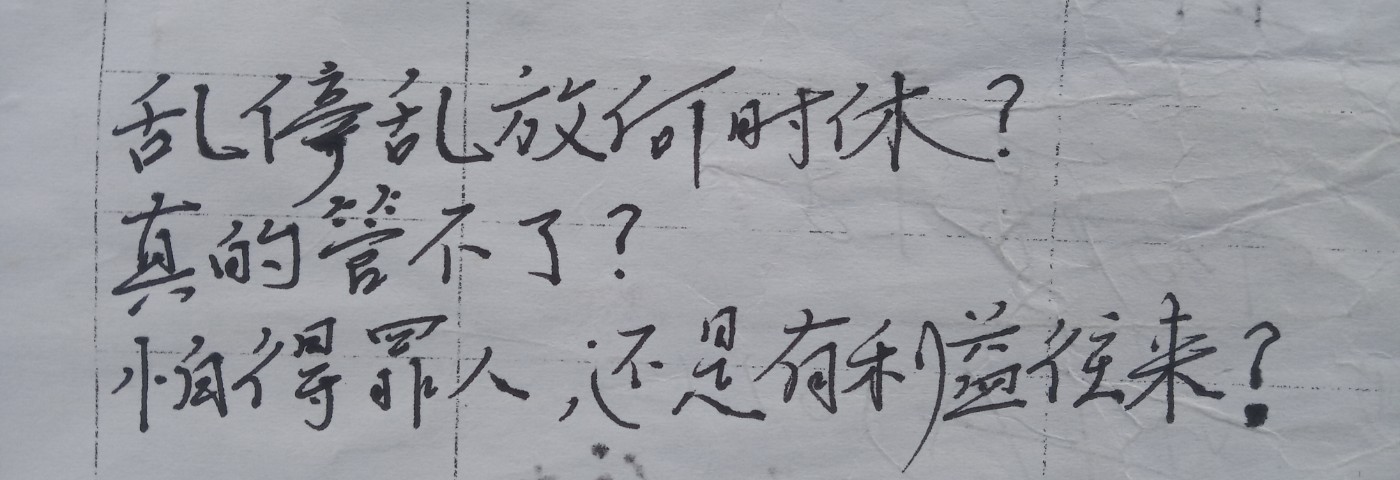 乱停乱放何时休？
真的管不了？
怕得罪人，还是有利益往来？